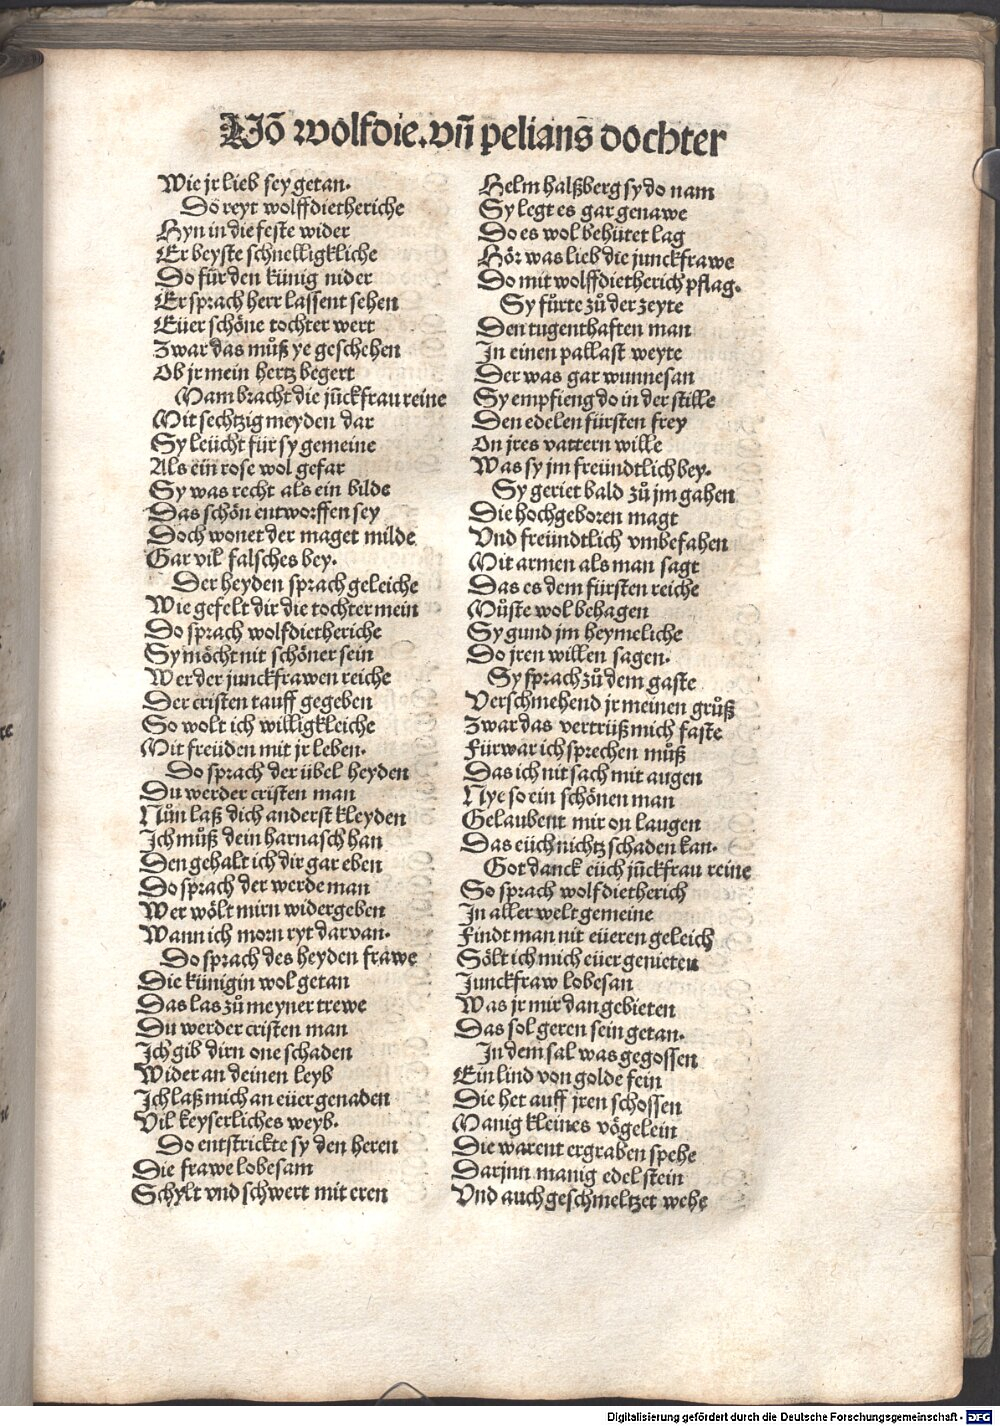 Võ wolfdie. vñ pelians dochter
Wie jr lieb sey getan.
Do reyt wolffdietheriche
Hyn in die feste wider
Er beyste schnelligkliche
Do für den künig nider
Er sprach herr lassent sehen
Eüer schöne tochter wert
Zwar das můß ye geschehen
Ob jr mein hertz begert
Mam bracht die jũckfrau reine
Mit sechtzig meyden dar
Sy leücht für sy gemeine
Als ein rose wol gefar
Sy was recht als ein bilde
Das schön entworffen sey
Doch wonet der maget milde
Gar vil falsches bey.
Der heyden sprach geleiche
Wie gefelt dir die tochter mein
Do sprach wolfdietheriche
Sy möcht nit schöner sein
Wer der junckfrawen reiche
Der cristen tauff gegeben
So wolt ich willigkleiche
Mit freüden mit jr leben.
Do sprach der übel heyden
Du werder cristen man
Nůn laß dich anderst kleyden
Ich můß dein harnasch han
Den gehalt ich dir gar eben
Do sprach der werde man
Wer wölt mirn widergeben
Wann ich morn ryt darvan.
Do sprach des heyden frawe
Die künigin wol getan
Das las zů meyner trewe
Du werder cristen man
Ich gib dirn one schaden
Wider an deinen leyb
Ich laß mich an eüer genaden
Vil keyserliches weyb.
Do entstrickte sy den heren
Die frawe lobesam
Schylt vnd schwert mit eren
Helm halßberg sy do nam
Sy legt es gar genawe
Do es wol behütet lag
Hör was lieb die junckfrawe
Do mit wolffdietherich pflag.
Sy fůrte zů der zeyte
Den tugenthaften man
In einen pallast weyte
Der was gar wunnesan
Sy empfieng do in der stille
Den edelen fürsten frey
On jres vattern wille
Was sy jm freündtlich bey.
Sy geriet bald zů jm gahen
Die hochgeboren magt
Vnd freündtlich vmbefahen
Mit armen als man sagt
Das es dem fürsten reiche
Můste wol behagen
Sy gund jm heymeliche
Do jren willen sagen.
Sy sprach zů dem gaste
Verschmehend jr meinen grůß
Zwar das vertrüß mich faste
Fürwar ich sprechen můß
Das ich nit sach mit augen
Nye so ein schönen man
Gelaubent mir on laugen
Das eüch nichtz schaden kan.
Got danck eüch jũckfrau reine
So sprach wolfdietherich
In aller welt gemeine
Findt man nit eüeren geleich
Sölt ich mich eüer genieten
Junckfraw lobesan
Was jr mir dan gebieten
Das sol geren sein getan.
In dem sal was gegossen
Ein lind von golde fein
Die het auff jren schossen
Manig kleines vögelein
Die warent ergraben spehe
Darjnn manig edel stein
Vnd auch geschmeltzet wehe
Digitalisierung gefördert durch die Deutsche Forschungsgemeinschaft - DFG